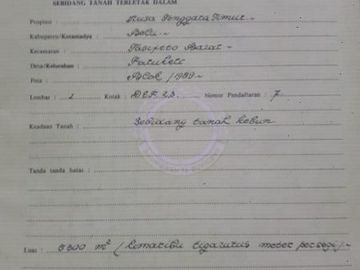 SEBIDANG TANAH TERLETAK DALAM
Propinsi : Nusa Tenggara Timur -
Kabupaten/Kotamadya : Belu -
Kecamatan : Tasifeto Barat -
Desa/Kelurahan :
Peta : Blok / 1989 -
Lembar : 2 Kotak : DEF 23. Nomor Pendaftaran : 7.
Keadaan Tanah : Sebidang tanah kebun
Tanda tanda batas :
Luas : 5300 m² ( limaribu tigaratus meter persegi ) -